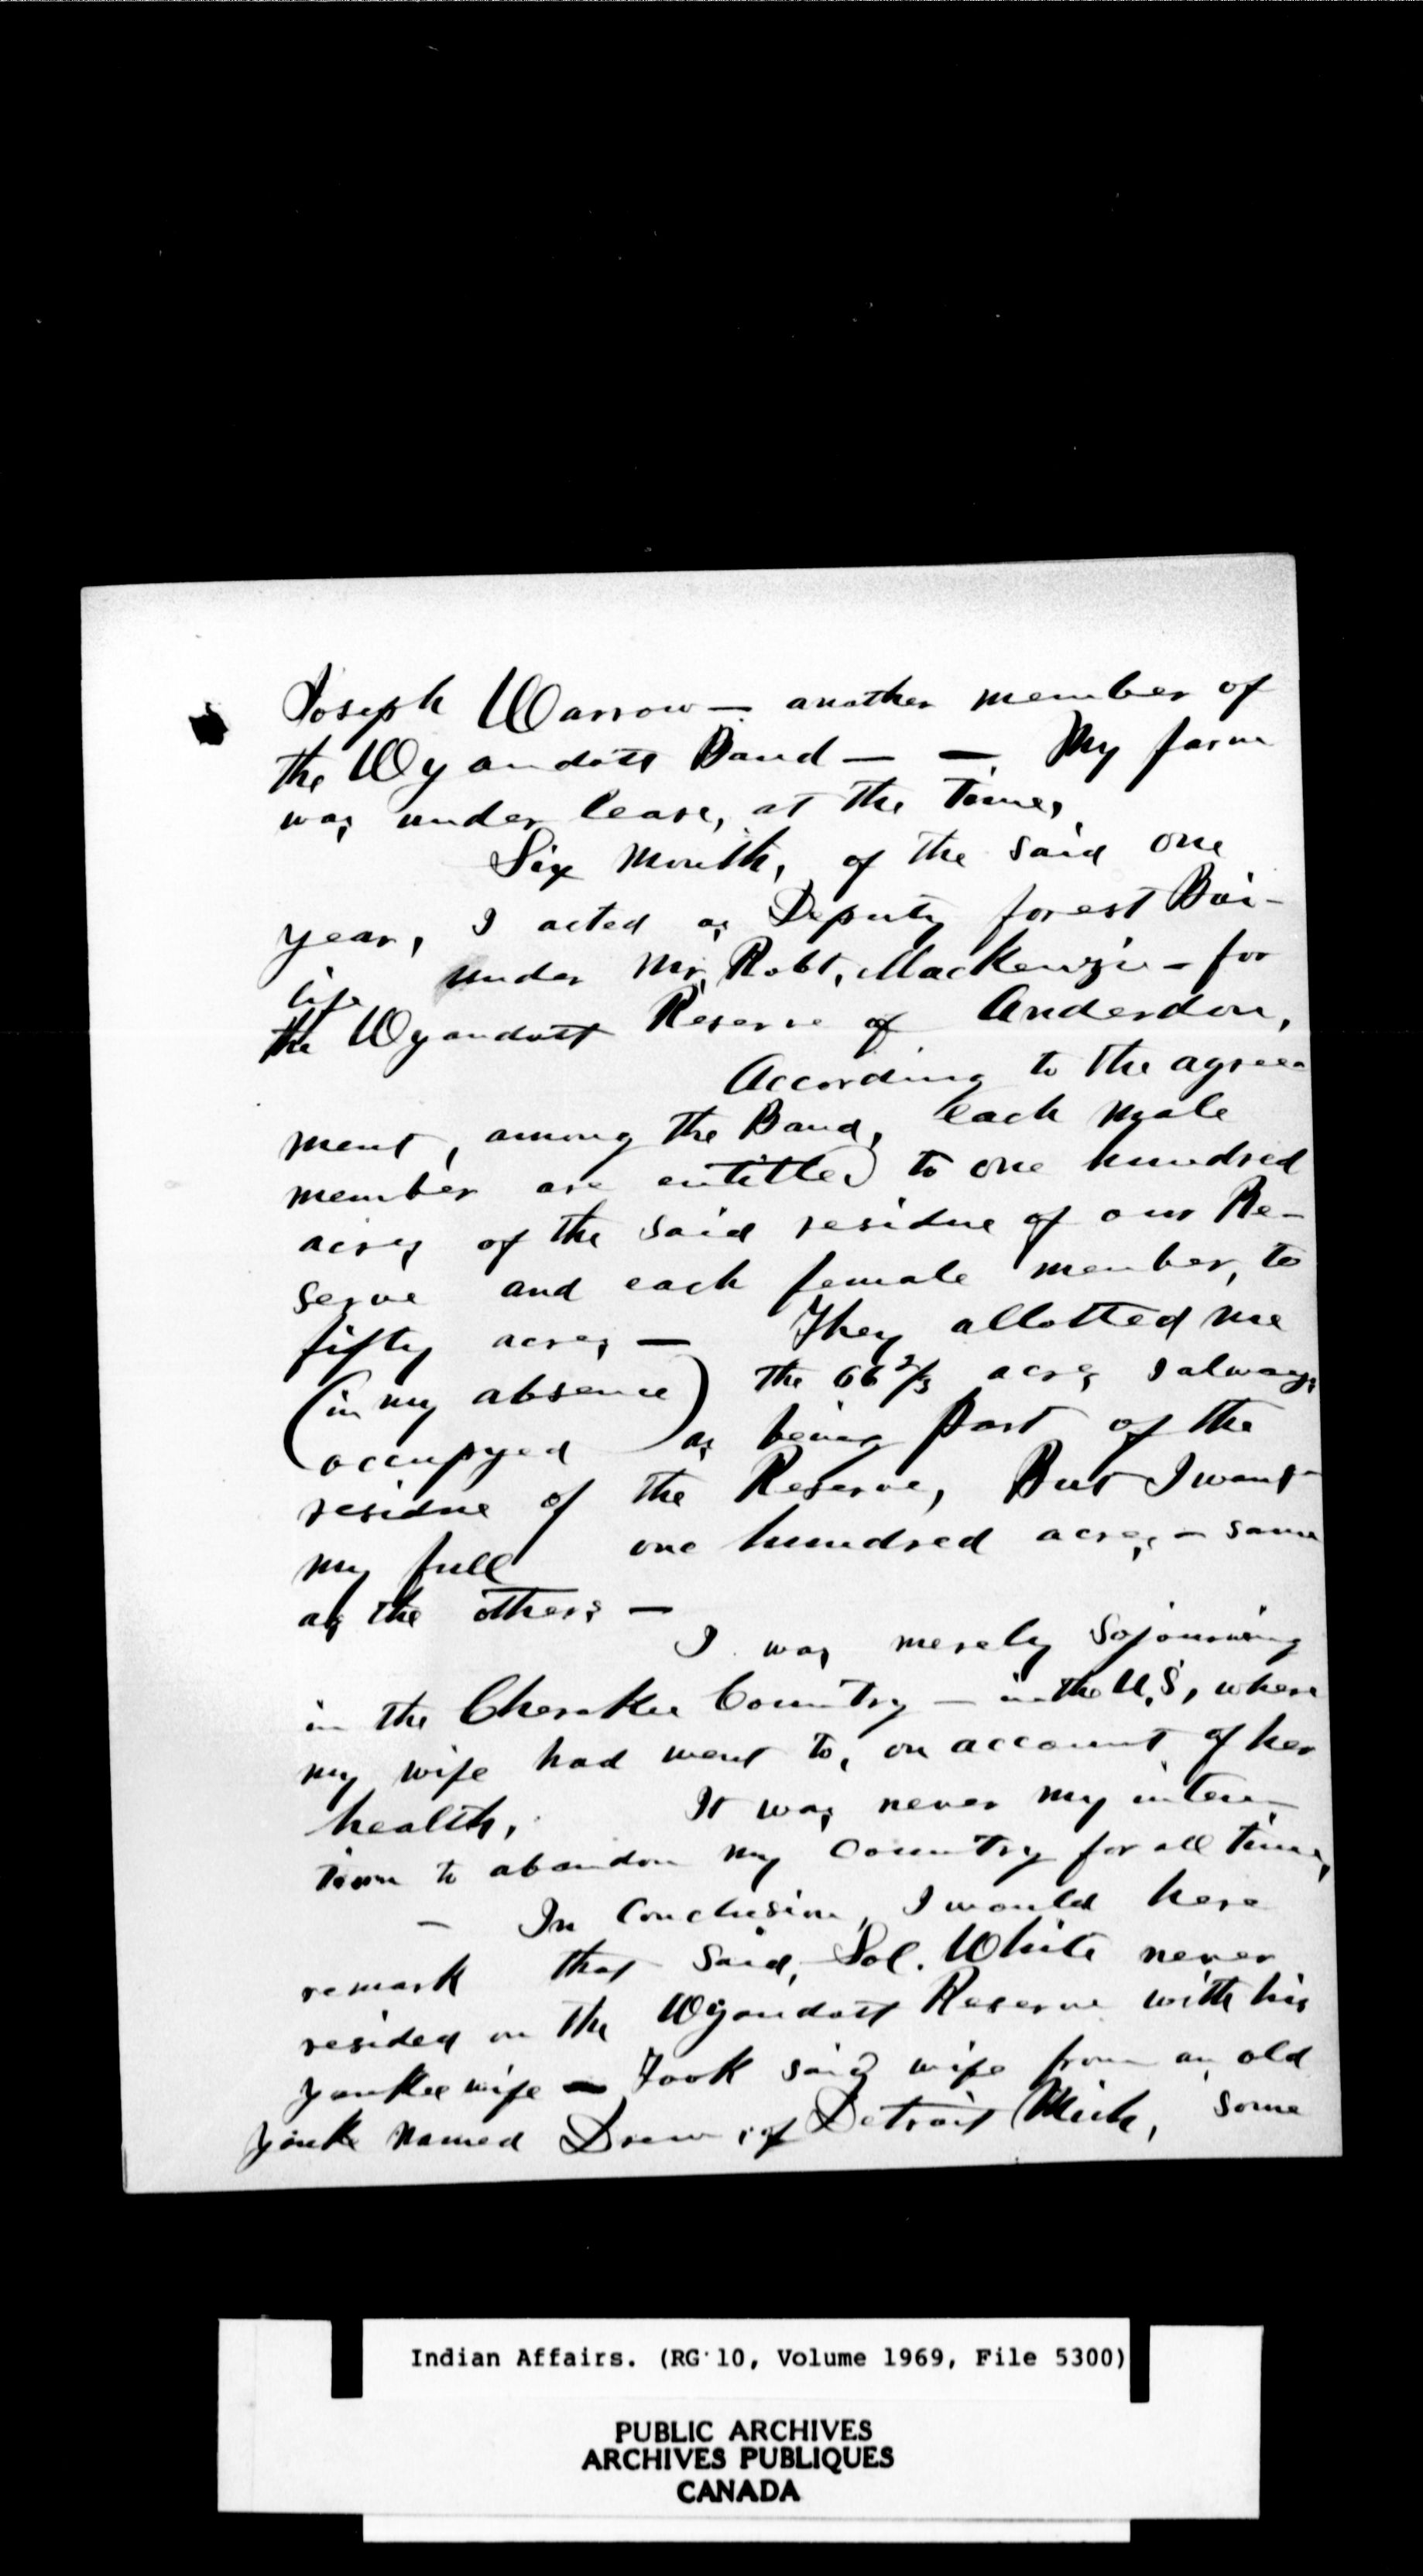 Joseph Warrow — another member of
the Wyandott Band — — My farm
was under lease, at the time,
Six months, of the said one
year, I acted as Deputy forest Bai-
life under Mr. Robt. MacKenzie — for
the Wyandott Reserve of Anderdon,
According to the agree-
ment, among the Band, each male
member are entitled to one hundred
acres of the said residue of our Re-
serve and each female member, to
fifty acres — They allotted me
(in my absence) the 66 2/3 acres I always
occupyed as being part of the
residue of the Reserve, But I want
my full one hundred acres — same
as the others —
I was merely sojourning
in the Cherokee Country — in the U.S, where
my wife had went to, on account of her
health, It was never my inten-
tion to abandon my Country for all time,
— In Conclusion, I would here
remark that said, Sol. White never
resided on the Wyandott Reserve with his
yankee wife — Took said wife from an old
yank named Drew, of Detroit Mich, some
Indian Affairs. (RG 10, Volume 1969, File 5300)
PUBLIC ARCHIVES
ARCHIVES PUBLIQUES
CANADA